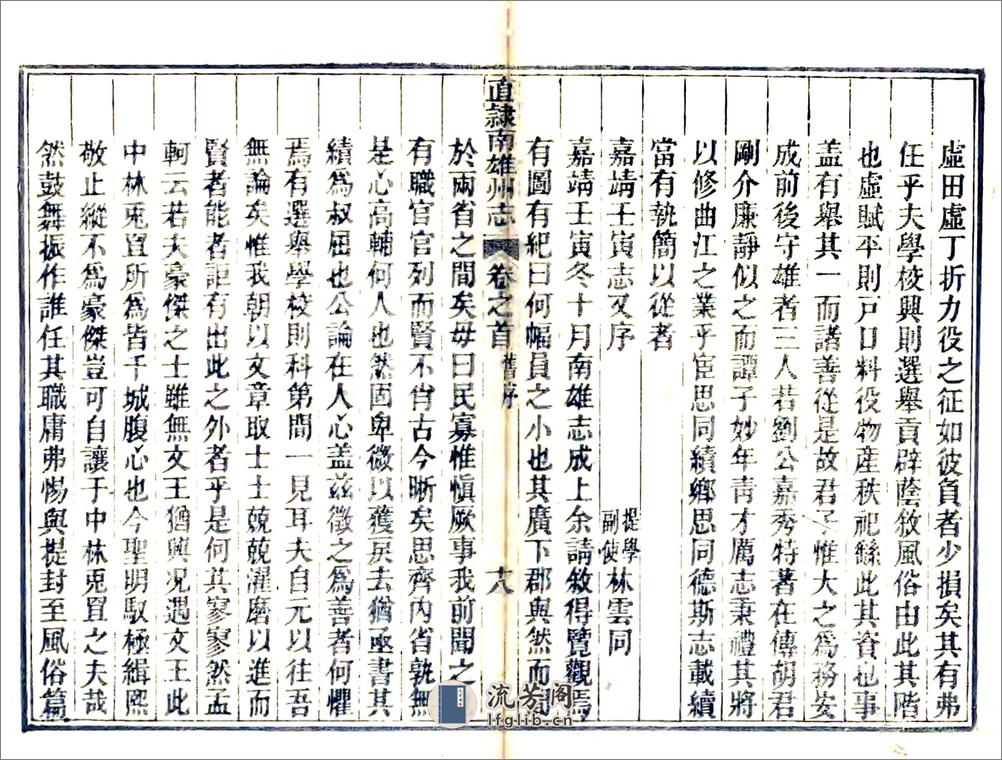 虛田虛丁折力役之征如彼負者少損矣其有弗
任乎夫學校興則選舉貢辟蔭敘風俗由此其階
也虛賦平則戸口料役物產秩祀繇此其資也事
盖有舉其一而諸善從是故君子惟大之爲務安
成前後守雄者三人若劉公嘉秀特著在傳胡君
剛介廉靜似之而譚子妙年靑才厲志秉禮其將
以修曲江之業乎宦思同續鄉思同德斯志載續
當有執簡以從者
嘉靖壬寅志又序
提學副使林雲同
嘉靖壬寅冬十月南雄志成上余請敘得覽觀焉
有圖有紀曰何幅員之小也其廣下郡與然而間
直隸南雄州志
卷之首
舊序
十八
於兩省之間矣毋曰民寡惟愼厥事我前聞之
有職官官列而賢不肖古今晰矣思齊內省孰無
是心高輔何人也然固卑微以獲戾去猶亟書其
績爲叔屈也公論在人心盖茲徵之爲善者何懼
焉有選舉學校則科第間一見耳夫自元以往吾
無論矣惟我朝以文章取士士競競濯磨以進而
賢者能者詎有出此之外者乎是何其寥寥然孟
軻云若夫豪傑之士雖無文王猶興况遇文王此
中林兎罝所爲皆干城腹心也今聖明馭極緝熙
敬止縱不爲豪傑豈可自讓于中林兎罝之夫哉
然鼓舞振作誰任其職庸弗惕與提封至風俗篇
流芳阁
lfglib.cn